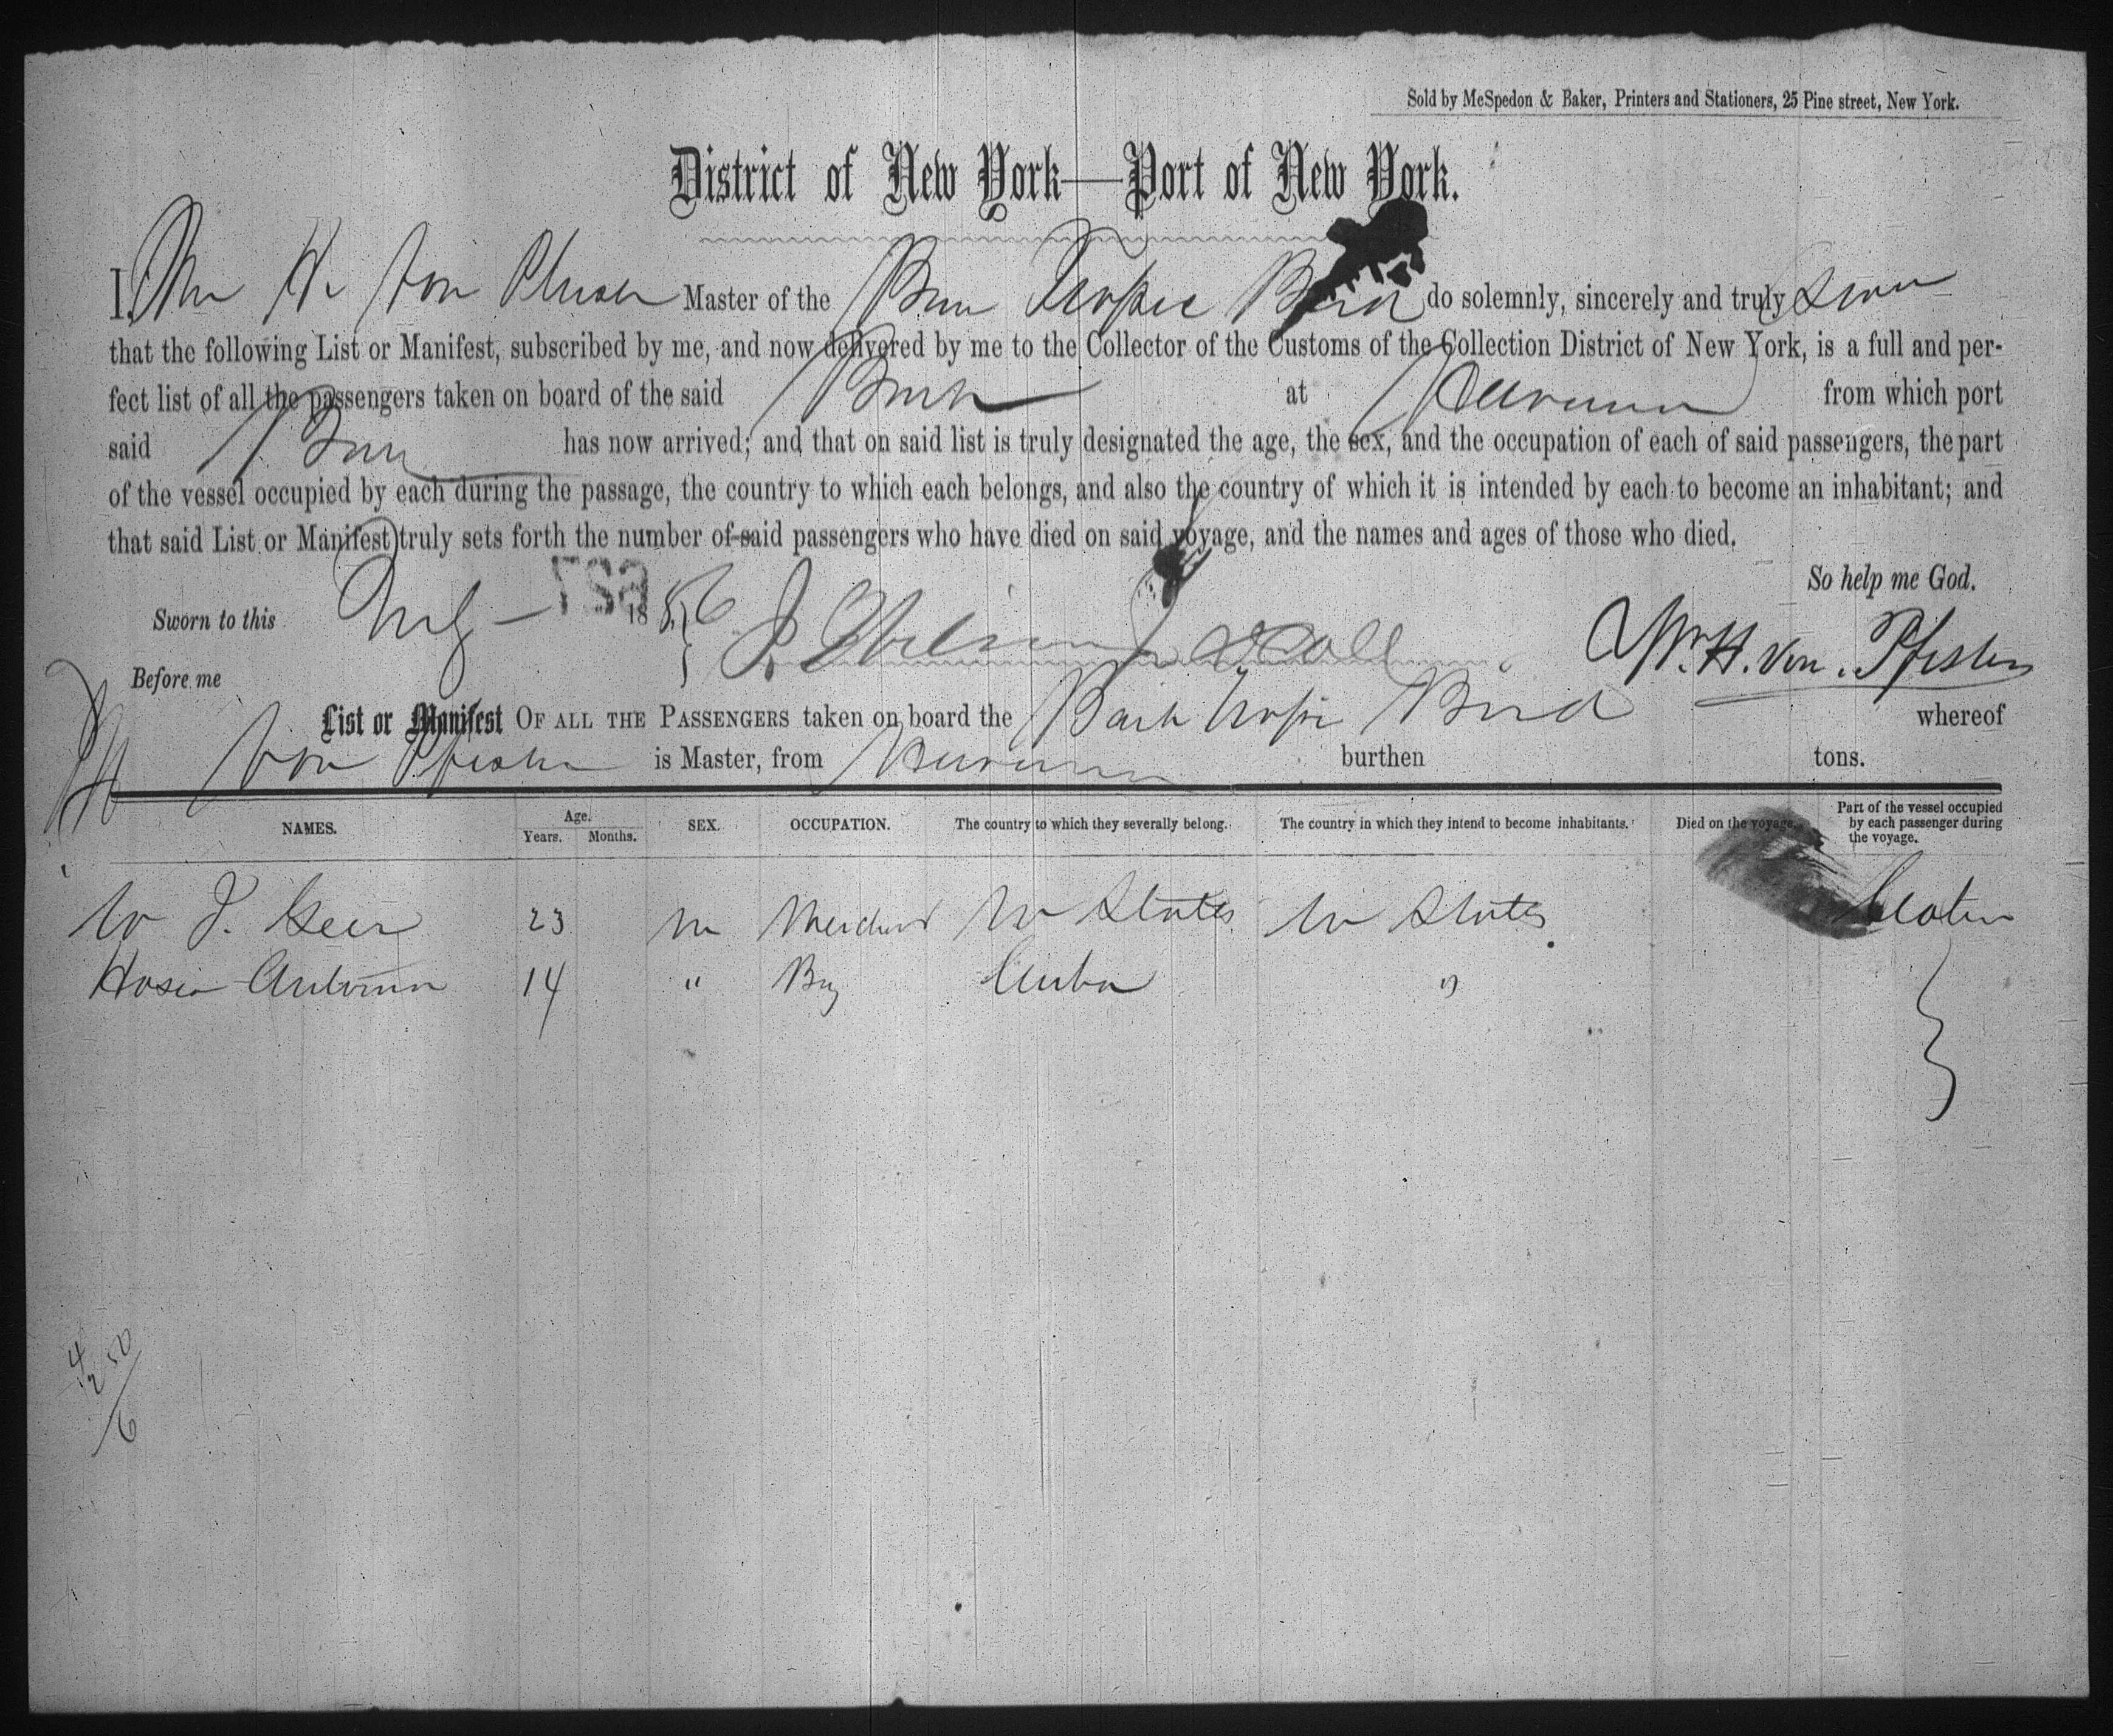 Sold by McSpedon & Baker, Printers and Stationers, 25 Pine street, New York.
District of New York—Port of New York.
I, Wm H. Von Pfister Master of the Bark Tropic Bird do solemnly, sincerely and truly swear
that the following List or Manifest, subscribed by me, and now delivered by me to the Collector of the Customs of the Collection District of New York, is a full and per-
fect list of all the passengers taken on board of the said Bark at Havana from which port
said Bark has now arrived; and that on said list is truly designated the age, the sex, and the occupation of each of said passengers, the part
of the vessel occupied by each during the passage, the country to which each belongs, and also the country of which it is intended by each to become an inhabitant; and
that said List or Manifest truly sets forth the number of said passengers who have died on said voyage, and the names and ages of those who died.
So help me God.
Sworn to this 1856
Before me
Wm. H. Von. Pfister
List or Manifest OF ALL THE PASSENGERS taken on board the Bark Tropic Bird whereof
Von Pfister is Master, from Havana burthen tons.
NAMES. Age. Years. Months. SEX. OCCUPATION. The country to which they severally belong. The country in which they intend to become inhabitants. Died on the voyage. Part of the vessel occupied by each passenger during the voyage.
W J. Geer 23 m Merchant U States U States
14 " Boy Cuba "
4 50
2
6